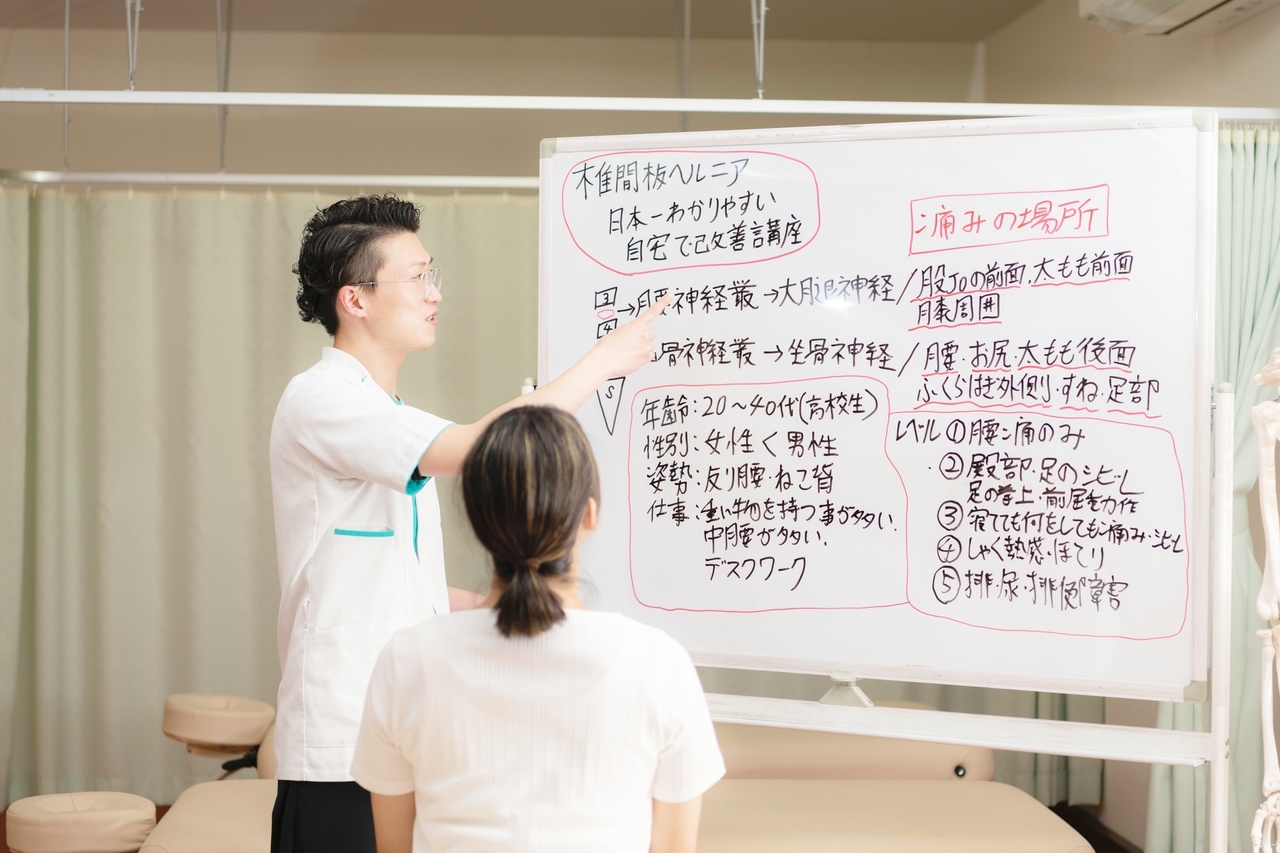 椎間板ヘルニア
日本一わかりやすい
自宅で改善講座
痛みの場所
3
→腰神経叢→大腿神経/股Joの前面、太もも前面
4
膝周囲
骨神経叢→坐骨神経/腰・お尻・太もも後面
ふくらはぎ外側・すね・足部
S
年齢:20〜40代(高校生)
性別:女性く男性
姿勢:反り腰・ねこ背
仕事:重い物を持つ事が多い.
中腰が多い.
デスクワーク
レベル①腰痛のみ
②殿部・足のシビレ
足の挙上・前屈動作
③寝てても何をしても痛み・シビレ
④しゃく熱感・ほてり
⑤排尿・排便障害